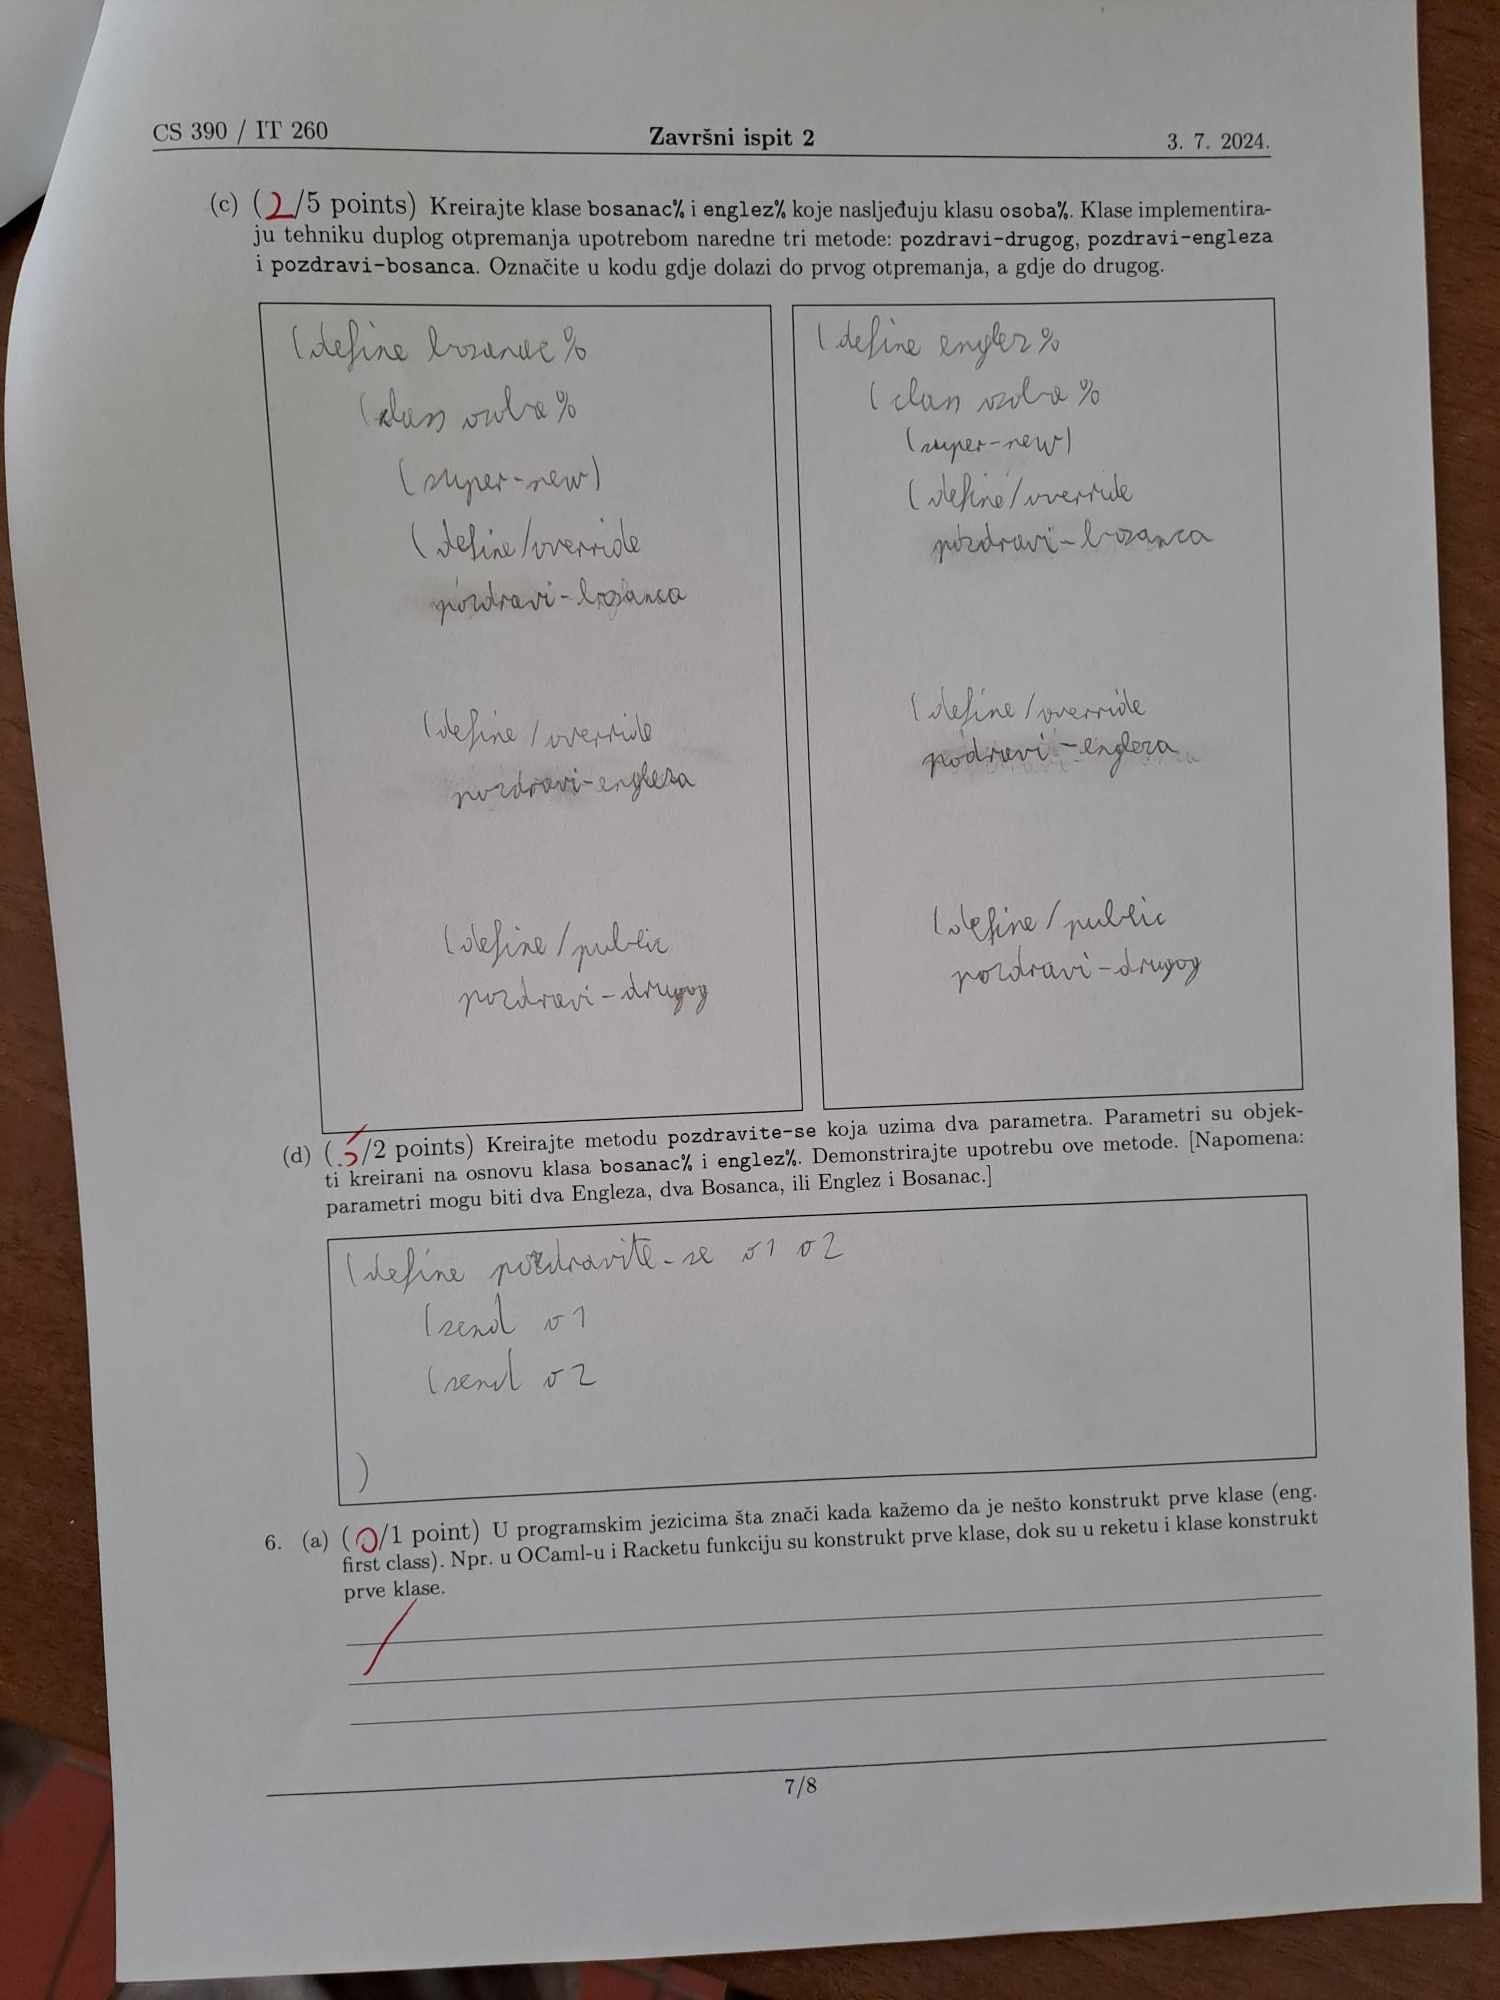 CS 390 / IT 260 Završni ispit 2 3. 7. 2024.
(c) (2/5 points) Kreirajte klase bosanac% i englez% koje nasljeđuju klasu osoba%. Klase implementira-
ju tehniku duplog otpremanja upotrebom naredne tri metode: pozdravi-drugog, pozdravi-engleza
i pozdravi-bosanca. Označite u kodu gdje dolazi do prvog otpremanja, a gdje do drugog.
(define bosanac%
(class osoba%
(super-new)
(define/override
pozdravi-bosanca
(define/override
pozdravi-engleza
(define/public
pozdravi-drugog
(define englez%
(class osoba%
(super-new)
(define/override
pozdravi-bosanca
(define/override
podravi-engleza
(define/public
pozdravi-drugog
(d) (.5/2 points) Kreirajte metodu pozdravite-se koja uzima dva parametra. Parametri su objek-
ti kreirani na osnovu klasa bosanac% i englez%. Demonstrirajte upotrebu ove metode. [Napomena:
parametri mogu biti dva Engleza, dva Bosanca, ili Englez i Bosanac.]
(define pozdravite-se o1 o2
(send o1
(send o2
)
6. (a) (0/1 point) U programskim jezicima šta znači kada kažemo da je nešto konstrukt prve klase (eng.
first class). Npr. u OCaml-u i Racketu funkciju su konstrukt prve klase, dok su u reketu i klase konstrukt
prve klase.
7/8